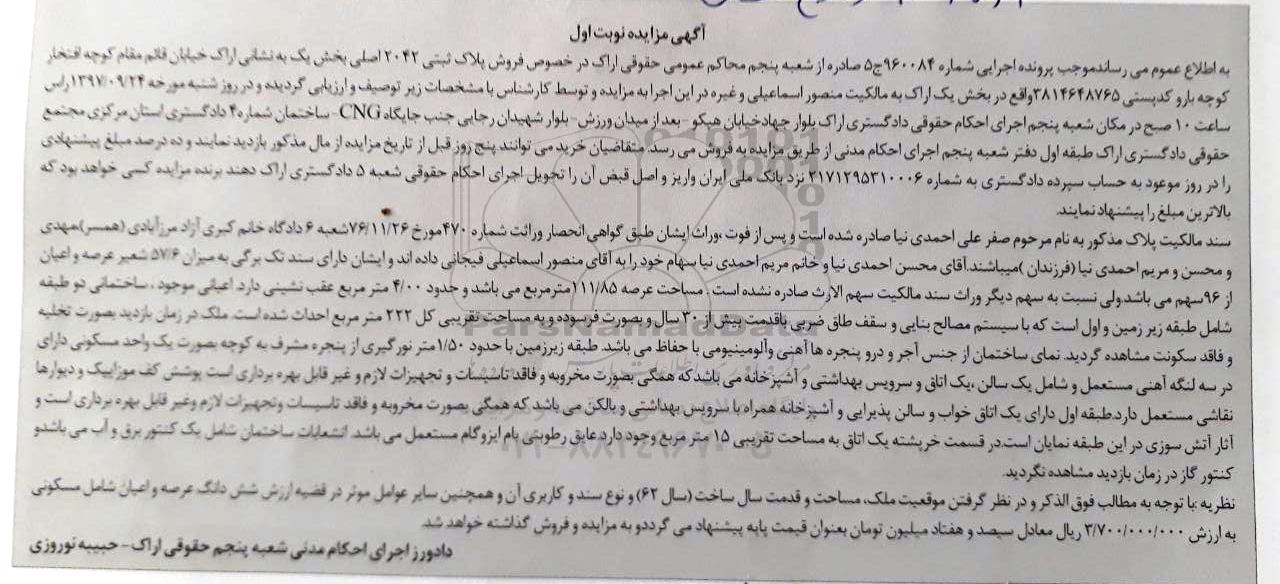 آگهی مزایده نوبت اول
به اطلاع عموم می رساندموجب پرونده اجرایی شماره ۹۶۰۰۸۴ج۵ صادره از شعبه پنجم محاکم عمومی حقوقی اراک در خصوص فروش پلاک ثبتی ۲۰۴۲ اصلی بخش یک به نشانی اراک خیابان قائم مقام کوچه افتخار
کوچه بارو کدپستی ۳۸۱۴۶۴۸۷۶۵واقع در بخش یک اراک به مالکیت منصور اسماعیلی و غیره در این اجرا به مزایده و توسط کارشناس با مشخصات زیر توصیف و ارزیابی گردیده و در روز شنبه مورخه ۱۳۹۷/۰۹/۲۴راس
ساعت ۱۰ صبح در مکان شعبه پنجم اجرای احکام حقوقی دادگستری اراک بلوار جهادخیابان هپکو - بعد از میدان ورزش- بلوار شهیدان رجایی جنب جایگاه CNG- ساختمان شماره۲ دادگستری استان مرکزی مجتمع
حقوقی دادگستری اراک طبقه اول دفتر شعبه پنجم اجرای احکام مدنی از طریق مزایده به فروش می رسد. متقاضیان خرید می توانند پنج روز قبل از تاریخ مزایده از مال مذکور بازدید نمایند و ده درصد مبلغ پیشنهادی
را در روز موعود به حساب سپرده دادگستری به شماره ۲۱۷۱۲۹۵۳۱۰۰۰۶ نزد بانک ملی ایران واریز و اصل قبض آن را تحویل اجرای احکام حقوقی شعبه ۵ دادگستری اراک دهند برنده مزایده کسی خواهد بود که
بالاترین مبلغ را پیشنهاد نمایند.
سند مالکیت پلاک مذکور به نام مرحوم صفر علی احمدی نیا صادره شده است و پس از فوت ،وراث ایشان طبق گواهی انحصار وراثت شماره ۴۷۰مورخ ۷۶/۱۱/۲۶شعبه ۶ دادگاه خانم کبری آزاد مرزآبادی (همسر)،مهدی
و محسن و مریم احمدی نیا (فرزندان )میباشند.آقای محسن احمدی نیا و خانم مریم احمدی نیا سهام خود را به آقای منصور اسماعیلی فیجانی داده اند و ایشان دارای سند تک برگی به میزان ۵۷/۶ شعیر عرصه و اعیان
از ۹۶سهم می باشد.ولی نسبت به سهم دیگر وراث سند مالکیت سهم الارث صادره نشده است . مساحت عرصه ۱۱۱/۸۵مترمربع می باشد و حدود ۴/۰۰ متر مربع عقب نشینی دارد. اعیانی موجود ، ساختمانی دو طبقه
شامل طبقه زیر زمین و اول است که با سیستم مصالح بنایی و سقف طاق ضربی باقدمت بیش از ۳۰ سال و بصورت فرسوده و به مساحت تقریبی کل ۲۲۲ متر مربع احداث شده است. ملک در زمان بازدید بصورت تخلیه
و فاقد سکونت مشاهده گردید. نمای ساختمان از جنس آجر و درو پنجره ها آهنی وآلومینیومی با حفاظ می باشد. طبقه زیرزمین با حدود ۱/۵۰متر نورگیری از پنجره مشرف به کوچه بصورت یک واحد مسکونی دارای
در سه لنگه آهنی مستعمل و شامل یک سالن ،یک اتاق و سرویس بهداشتی و آشپزخانه می باشد که همگی بصورت مخروبه و فاقد تاسیسات و تجهیزات لازم و غیر قابل بهره برداری است پوشش کف موزاییک و دیوارها
نقاشی مستعمل دارد.طبقه اول دارای یک اتاق خواب و سالن پذیرایی و آشپزخانه همراه با سرویس بهداشتی و بالکن می باشد که همگی بصورت مخروبه و فاقد تاسیسات وتجهیزات لازم وغیر قابل بهره برداری است و
آثار آتش سوزی در این طبقه نمایان است.در قسمت خرپشته یک اتاق به مساحت تقریبی ۱۵ متر مربع وجود دارد.عایق رطوبتی بام ایزوگام مستعمل می باشد. انشعابات ساختمان شامل یک کنتور برق و آب می باشدو
کنتور گاز در زمان بازدید مشاهده نگردید.
نظریه :با توجه به مطالب فوق الذکر و در نظر گرفتن موقعیت ملک، مساحت و قدمت سال ساخت (سال ۶۲) و نوع سند و کاربری آن و همچنین سایر عوامل موثر در قضیه ارزش شش دانگ عرصه و اعیان شامل مسکونی
به ارزش ۳/۷۰۰/۰۰۰/۰۰۰ ریال معادل سیصد و هفتاد میلیون تومان بعنوان قیمت پایه پیشنهاد می گرددو به مزایده و فروش گذاشته خواهد شد.
دادورز اجرای احکام مدنی شعبه پنجم حقوقی اراک- حبیبه نوروزی
ParsNamadData